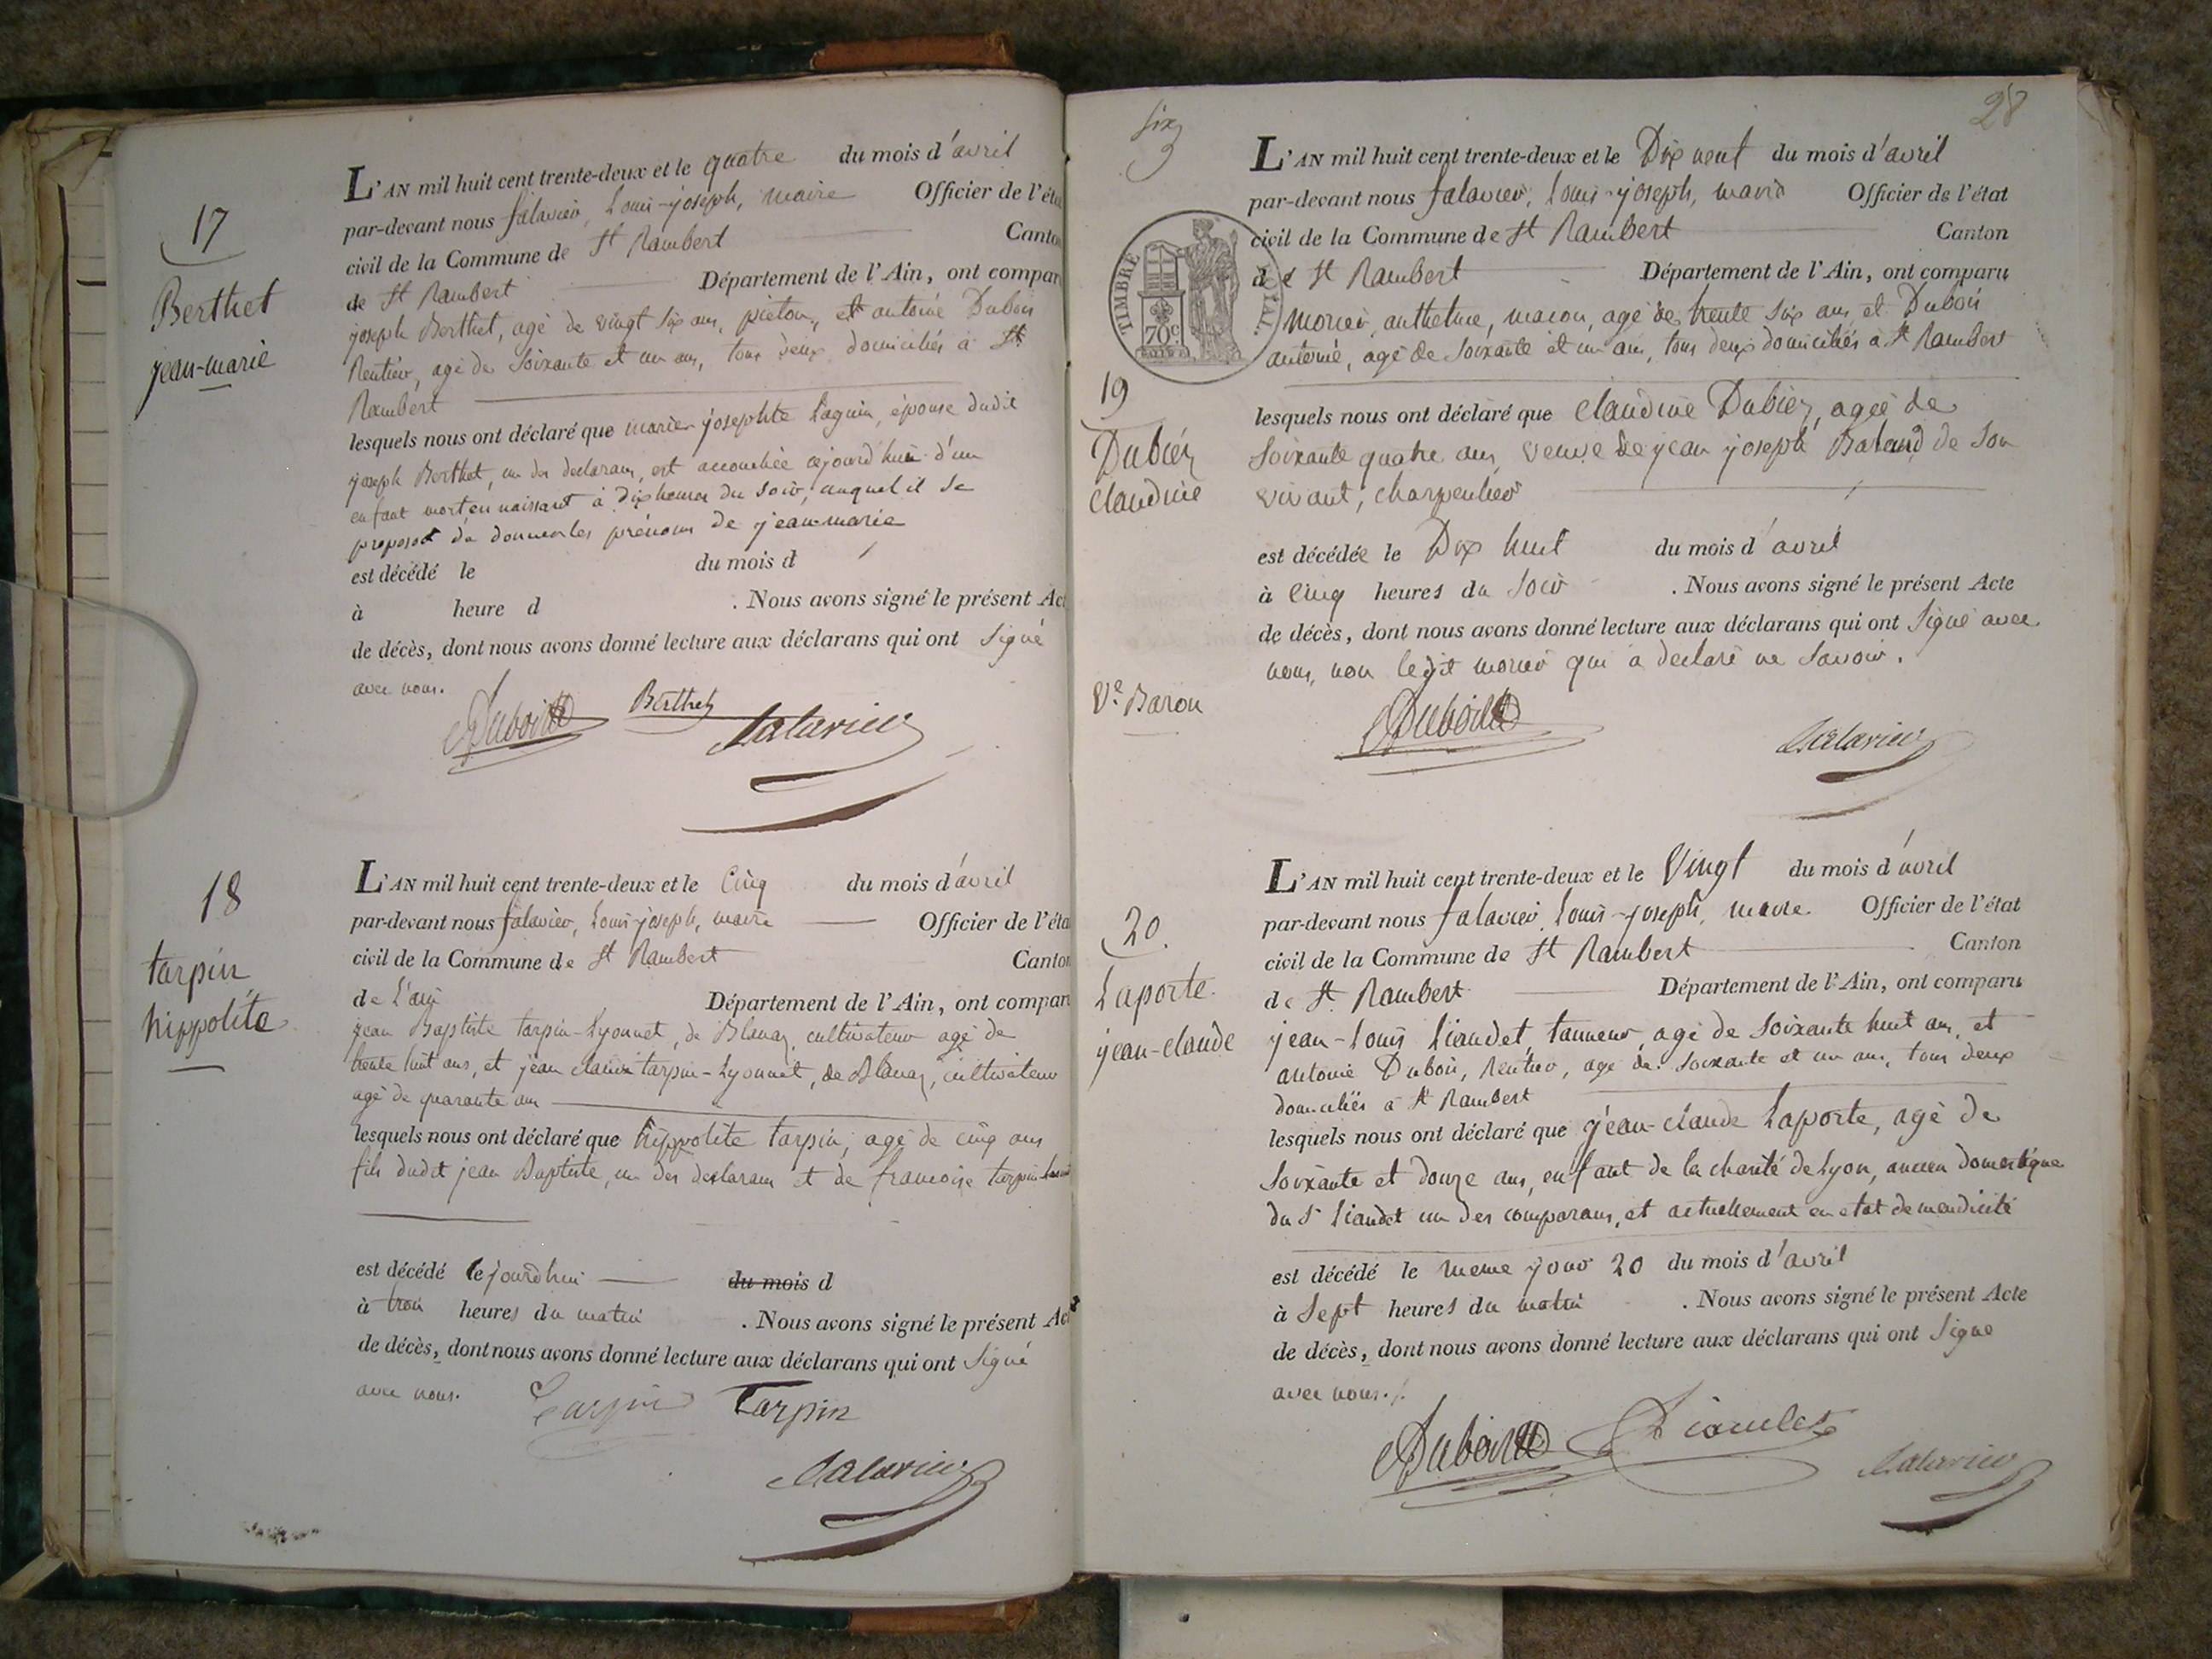 17
Berthet
jean-marie
L'AN mil huit cent trente-deux et le quatre du mois d'avril
par-devant nous falavier, Louis-joseph, maire Officier de l'éta
civil de la Commune de St Rambert Canto
de St Rambert Département de l'Ain, ont compar
joseph Berthet, agé de vingt six ans, piéton, et antoine Dubois
Rentier, agé de Soixante et un ans, tous deux domiciliés à St
Rambert
lesquels nous ont déclaré que marie josephte épouse dudit
joseph Berthet, un des declarans, est accouchée cejourd'hui d'un
enfant mort en naissant à dix heures du soir, auquel il se
proposoit de donner les prénoms de jean-marie
est décédé le du mois d
à heure d . Nous avons signé le présent Act
de décès, dont nous avons donné lecture aux déclarans qui ont Signé
avec nous.
Dubois Berthet
falavier
18
tarpin
hippolite
L'AN mil huit cent trente-deux et le Cinq du mois d'avril
par-devant nous falavier, Louis-joseph, maire Officier de l'éta
civil de la Commune de St Rambert Canton
de L'ain Département de l'Ain, ont compar
jean Baptiste tarpin-Lyonnet, de Blanaz, cultivateur agé de
trente huit ans, et jean tarpin-Lyonnet, de Blanaz, cultivateur
agé de quarante ans
lesquels nous ont déclaré que hippolite tarpin, agé de cinq ans
fils dudit jean Baptiste, un des declarans et de francoise tarpin
est décédé cejourd'hui du mois d
à trois heures du matin . Nous avons signé le présent Act
de décès, dont nous avons donné lecture aux déclarans qui ont Signé
avec nous.
Tarpin Tarpin
falavier
Six
28
TIMBRE
70 c
19
Dubiez
Claudine
Ve Baron
L'AN mil huit cent trente-deux et le Dix neuf du mois d'avril
par-devant nous falavier, Louis-joseph, maire Officier de l'état
civil de la Commune de St Rambert Canton
de St Rambert Département de l'Ain, ont comparu
morier, anthelme, macon, agé de trente six ans, et Dubois
antoine, agé de Soixante et un ans, tous deux domiciliés à St Rambert
lesquels nous ont déclaré que Claudine Dubiez, agée de
Soixante quatre ans, veuve de jean joseph de Son
vivant, charpentier
est décédée le Dix huit du mois d'avril
à Cinq heures du Soir . Nous avons signé le présent Acte
de décès, dont nous avons donné lecture aux déclarans qui ont Signé avec
nous, non ledit morier qui a declaré ne Savoir.
Dubois
falavier
20
Laporte
jean-claude
L'AN mil huit cent trente-deux et le Vingt du mois d'avril
par-devant nous falavier, Louis-joseph, maire Officier de l'état
civil de la Commune de St Rambert Canton
de St Rambert Département de l'Ain, ont comparu
jean-Louis Liaudet, tanneur, agé de Soixante huit ans, et
antoine Dubois, Rentier, agé de Soixante et un ans, tous deux
domiciliés à St Rambert
lesquels nous ont déclaré que jean-claude Laporte, agé de
Soixante et douze ans, enfant de la charité de Lyon, ancien domestique
du Sr Liaudet un des comparans, et actuellement en etat de mendicité
est décédé le meme jour 20 du mois d'avril
à Sept heures du matin . Nous avons signé le présent Acte
de décès, dont nous avons donné lecture aux déclarans qui ont Signé
avec nous.
Dubois Liaudet
falavier